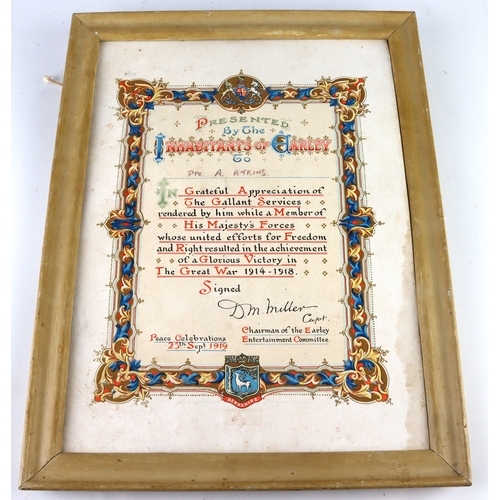 Presented
By The
Inhabitants of Earley
To
Pte. A. Atkins.
In Grateful Appreciation of
The Gallant Services
rendered by him while a Member of
His Majesty's Forces
whose united efforts for Freedom
and Right resulted in the achievement
of a Glorious Victory in
The Great War 1914-1918.
Signed
D.M. Miller
Capt.
Chairman of the Earley
Entertainment Committee.
Peace Celebrations
25th Sept 1919
BERKSHIRE